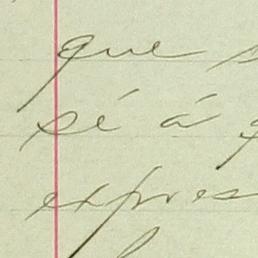 que s
sé á q
expres